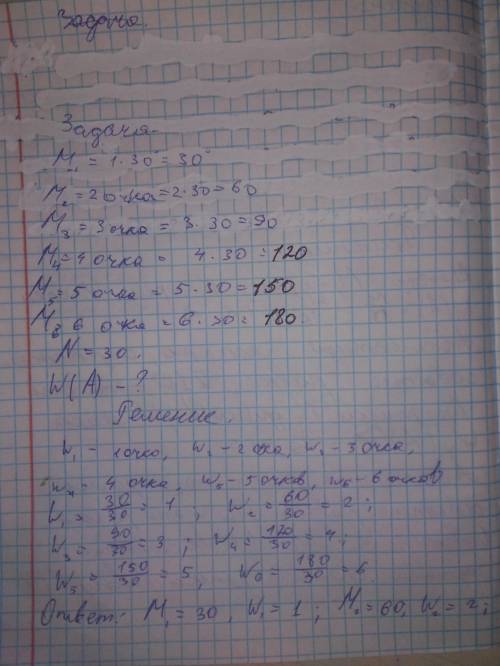 Задача.
Задача.
M₁ = 1·30 = 30
M₂ = 2 очка = 2·30 = 60
M₃ = 3 очка = 3·30 = 90
M₄ = 4 очка = 4·30 = 120
M₅ = 5 очка = 5·30 = 150
M₆ 6 очка = 6·30 = 180
N = 30.
W(A) - ?
Решение.
W₁ - 1 очко, W₂ - 2 очка, W₃ - 3 очка,
W₄ - 4 очка, W₅ - 5 очков, W₆ - 6 очков
W₁ = 30/30 = 1 ; W₂ = 60/30 = 2 ;
W₃ = 90/30 = 3 ; W₄ = 120/30 = 4 ;
W₅ = 150/30 = 5, W₆ = 180/30 = 6.
Ответ: M₁ = 30, W₁ = 1 ; M₂ = 60, W₂ = 2 ;